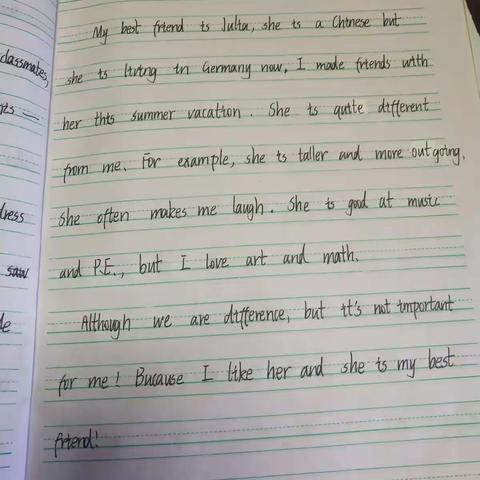 My best friend is Julia, she is a Chinese but
classmates,
she is living in Germany now, I made friends with
her this summer vacation. She is quite different
from me. For example, she is taller and more outgoing.
dress
She often makes me laugh. She is good at music
saw
and P.E., but I love art and math.
Although we are difference, but it's not important
for me! Bucause I like her and she is my best
friend!